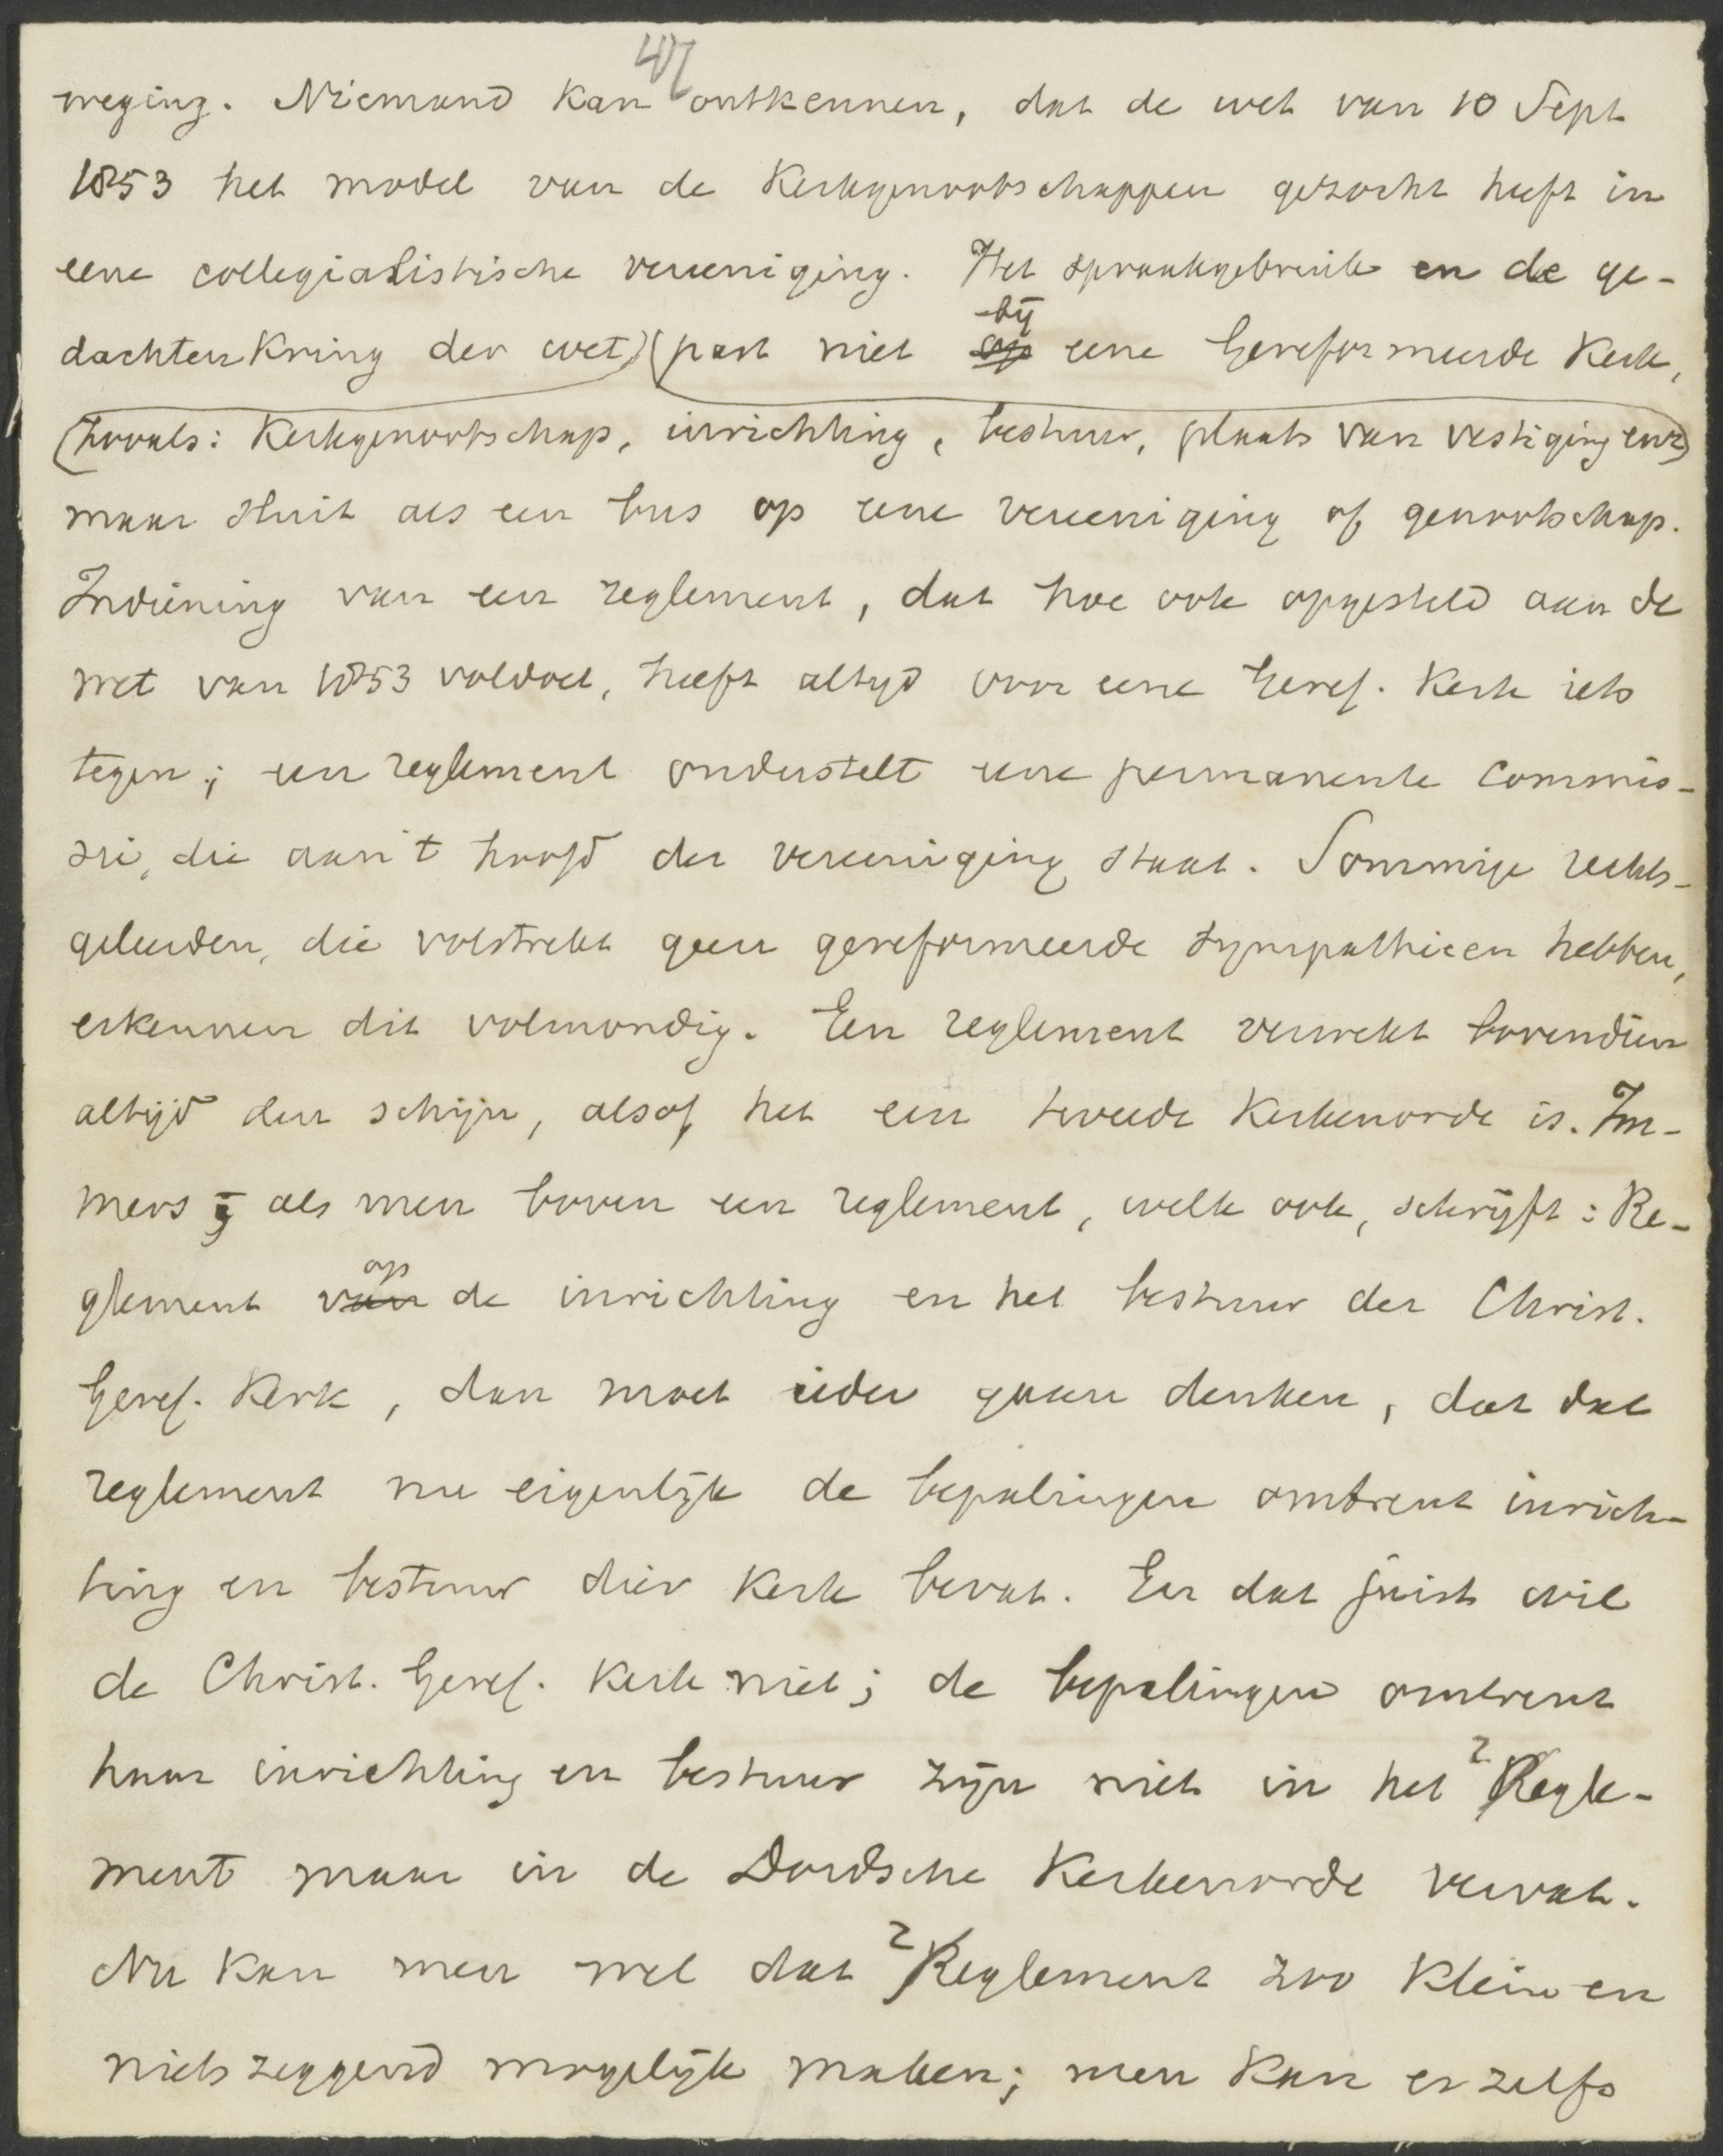 47
weging. Niemand kan ontkennen, dat de wet van 10 Sept
1853 het model van de Kerkgenootschappen gezocht heeft in
eene collegialistische vereeniging. Het spraakgebruik en de ge-
bij
dachtenkring der wet) (past niet op eene Gereformeerde Kerk,
(zooals: Kerkgenootschap, inrichting, bestuur, plaats van vestiging enz)
maar sluit als een bus op eene vereeniging of genootschap.
Indiening van een reglement, dat hoe ook opgesteld aan de
wet van 1853 voldoet, heeft altijd voor eene Geref. Kerk iets
tegen; een reglement onderstelt eene permanente commis-
sie, die aan 't hoofd der vereeniging staat. Sommige rechts-
geleerden, die volstrekt geen gereformeerde sympathieen hebben,
erkennen dit volmondig. Een reglement verwekt bovendien
altijd den schijn, alsof het een tweede Kerkenorde is. Im-
mers als men boven een reglement, welk ook, schrijft: Re-
op
glement van de inrichting en het bestuur der Christ.
Geref. Kerk, dan moet ieder gaan denken, dat dat
reglement nu eigenlijk de bepalingen omtrent inrich-
ting en bestuur dier Kerk bevat. En dat juist wil
de Christ. Geref. Kerk niet; de bepalingen omtrent
haar inrichting en bestuur zijn niet in het Regle-
ment maar in de Dordsche Kerkenorde vervat.
Nu kan men wel dat Reglement zoo klein en
nietszeggend mogelijk maken; men kan er zelfs